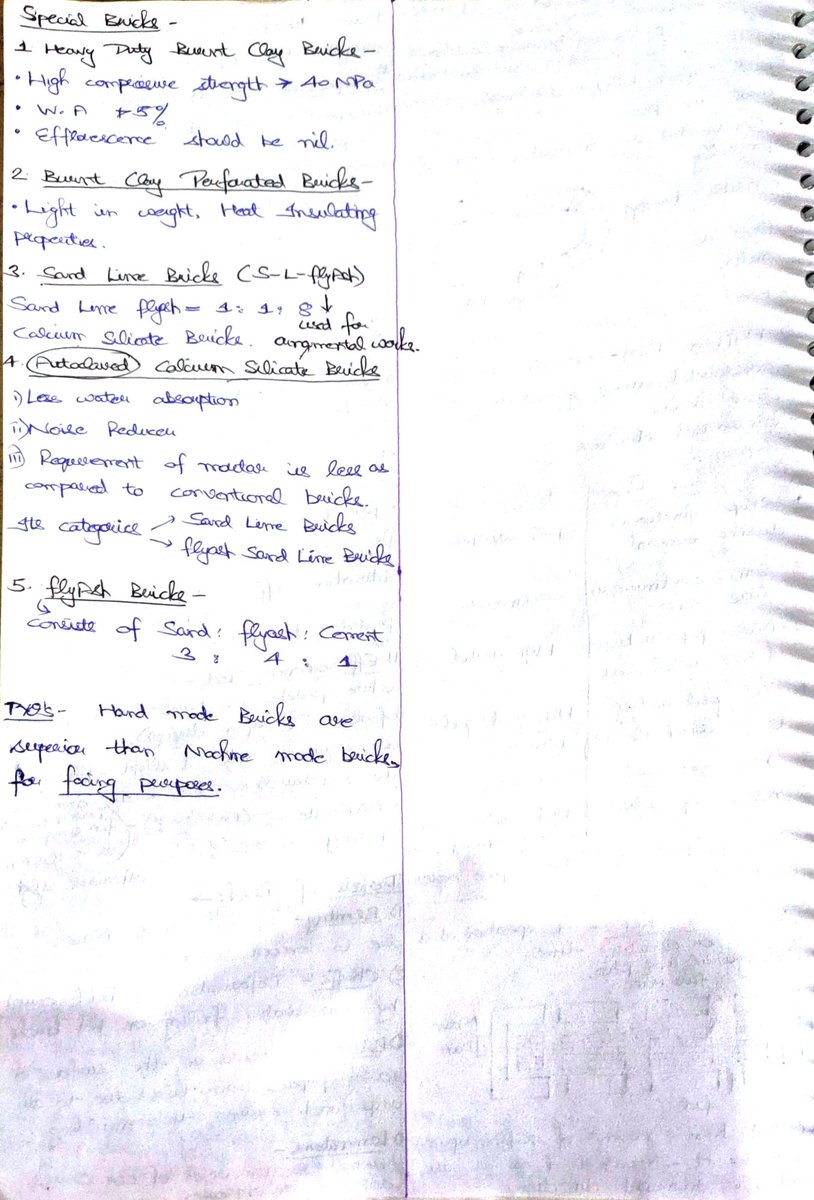 Special Bricks -
1 Heavy Duty Burnt Clay Bricks -
• High compressive strength → 40 MPa
• W.A ≯ 5%
• Efflorescence should be nil.
2 Burnt Clay Perforated Bricks -
• Light in weight, Heat Insulating
properties.
3. Sand Lime Bricks (S-L-flyAsh)
Sand Lime flyash = 1 : 1 : 8
used for
Calcium Silicate Bricks.
arngmental works.
4. Autoclaved Calcium Silicate Bricks
i) Less water absorption
ii) Noise Reducer
iii) Requirement of mortar is less as
compared to conventional bricks.
Its categories → Sand Lime Bricks
→ flyash Sand Lime Bricks
5. flyAsh Bricks -
consists of Sand : flyash : Cement
3 : 4 : 1
Hand made Bricks are
superior than Machine made bricks
for facing purposes.